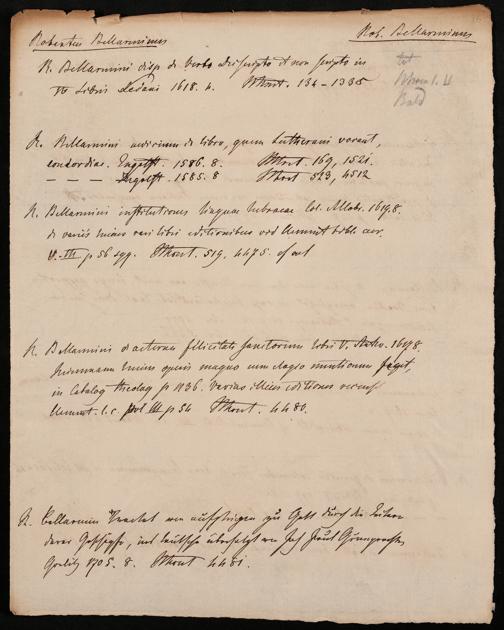 Robertus Bellarminus
Rob. Bellarminus
R. Bellarmini disp. de Verbo Dei scripto et non scripto in
IV Libris Sedani 1618. 4. 134–1335
R. Bellarmini iudicium de libro, quem Lutherani vocant,
concordiae. Ingolst. 1586. 8. 169, 1521.
— — — Ingolst. 1585. 8 523, 4512
R. Bellarmini institutiones linguae hebraicae Col. Allobr. 1619. 8.
de variis huius rari libri editionibus vid Clement bibl. cur.
V. III p 56 sqq. 519, 4475.
R. Bellarmini d aeterna felicitate sanctorum libri V. 1618.
huius operis magno cum elogio mentionem facit,
in Catalog theolog p 1136. Varias illius editiones recenset
Clement. l. c. Vol III p 54 4480.
R. Bellarmin Tractat von auffsteigen zu Gott durch die Leitern
derer Geschöpfe, ins teutsche übersetzt von
Görlitz 1705. 8. 4481.